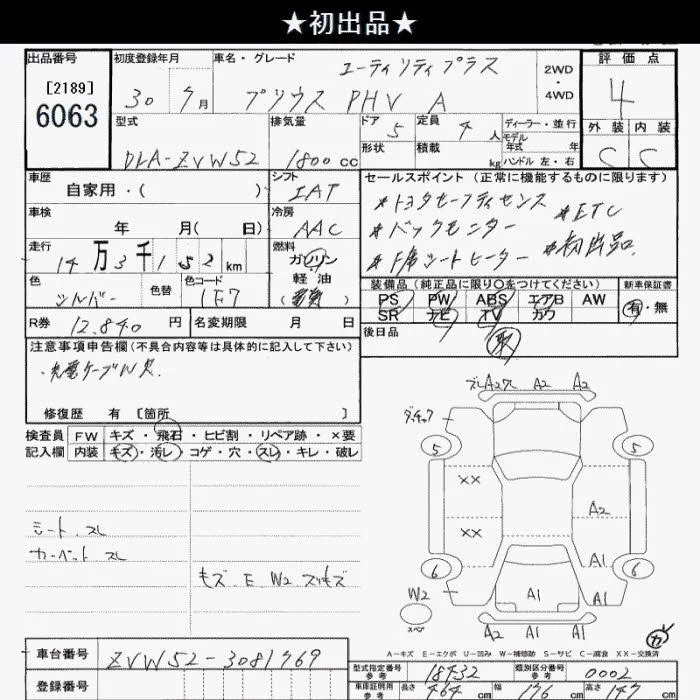 ★初出品★
出品番号 初度登録年月 車名・グレード 評価点
[2189] ユーティリティプラス 2WD
6063 30 7月 プリウス PHV A ・4WD 4
型式 排気量 ドア 定員 ディーラー・並行 外装 内装
5 4人 モデル年式 年式
DLA-ZVW52 1800cc 形状 積載 kg ハンドル 左・右 C C
車歴 シフト セールスポイント(正常に機能するものに限ります)
自家用・( ) IAT *トヨタセーフティセンス *ETC
車検 冷房 *バックモニター
年 月( 日) AAC *初出品
走行 燃料 *シートヒーター
14万3千152km ガソリン
色 色替 色コード 軽油 装備品(純正品に限り○をつけてください) 新車保証書
シルバー 1F7 PS PW ABS エアB AW 有・無
R券 12,840円 名変期限 月 日 SR ナビ TV カワ
後日品 取
注意事項申告欄(不具合内容等は具体的に記入して下さい)
・充電ケーブル欠
修復歴 有 [箇所 ]
検査員 FW キズ・飛石・ヒビ割・リペア跡・×要
記入欄 内装 キズ・汚レ・コゲ・穴・スレ・キレ・破レ
A2 A2 A2
5 5
XX
XX A2
シート スレ
カーペット スレ
A1
6 6
キズ E W2 スリキズ
W2 A1 A1
スペア
A2 A1 A1
A-キズ E-エクボ U-凹み W-補修跡 S-サビ C-腐食 XX-交換済
車台番号 ZVW52-3081769
登録番号
型式指定番号 参考 18432 類別区分番号 参考 0002
車庫証明用 参考 長さ 464cm 幅 176cm 高さ 147cm